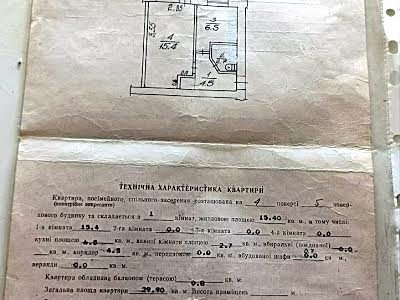 2.85
3
6.5
5.55
4
15.4
1
4.5
ТЕХНІЧНА ХАРАКТЕРИСТИКА КВАРТИРИ
Квартира, посімейного, спільного заселення розташована на 4 поверсі 5 повер-
(непотрібне закреслити)
хового будинку та складається з 1 кімнат, житловою площею 15.40 кв. м, в тому числі:
1-а кімната 15.4 2-га кімната 0.0 3-я кімната 0.0 4-а кімната 0.0
кухні площею 6.5 кв. м, ванної кімнати площею 2.7 кв. м, вбиральні (поєднаної) 0.0
кв. м, коридор 4.5 кв. м, передпокою 0.0 кв. м, вбудованої шафи 0.0 кв. м,
веранди 0.0 кв. м.
Квартира обладнана балконом (терасою) 0.8 кв. м.
Загальна площа квартири 29.90 кв. м. Висота приміщень м.